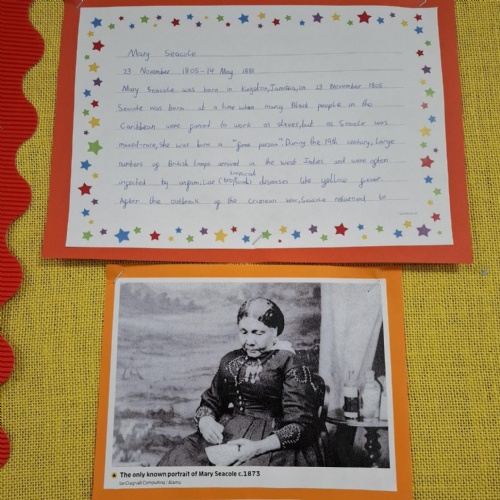 Mary Seacole
23 November 1805-14 May 1881
Mary Seacole was born in Kingston, Jamaica, on 23 November 1805
Seacole was born at a time when many Black people in the
Caribbean were forced to work as slaves, but as Seacole was
mixed race, she was born a "free person". During the 19th century, large
numbers of British troops arrived in the West Indies and were often
tropical
infected by unfamiliar diseases like yellow fever.
After the outbreak of the Crimean War, Seacole returned to
The only known portrait of Mary Seacole c.1873
Ian Dagnall Computing / Alamy